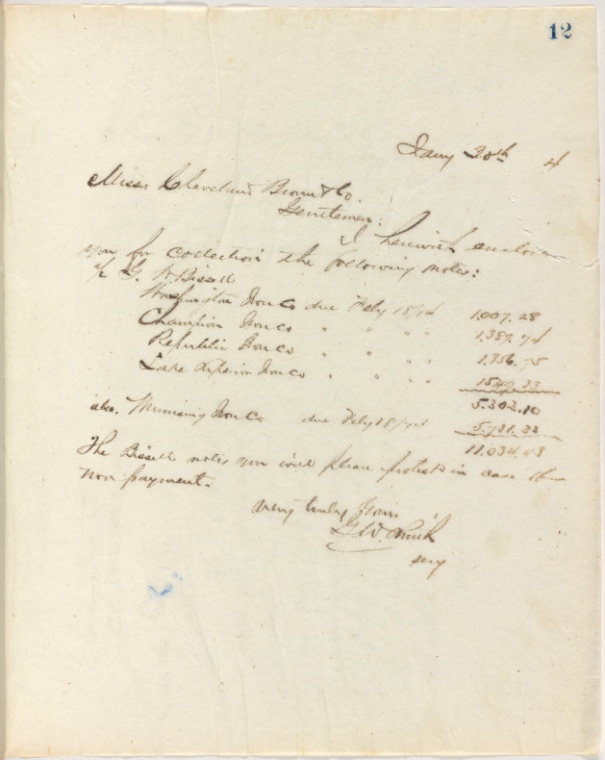 12
Jany 30th 4
Messrs Cleveland Brown & Co.
Gentlemen:
I herewith enclose
you for collection the following notes:
a/c G. W. Bissell
Washington Iron Co due Feby 18/74 1,007.28
Champion Iron Co " " " 1,389.74
Republic Iron Co " " " " 1,356.75
Lake Superior Iron Co " " " " 1549.33
5.303.10
also. Munising Iron Co due Feby 18/74 5.731.33
11.034.43
The Bissell notes you will please protest in case of
non payment.
Very truly Yours
G.W. Smith